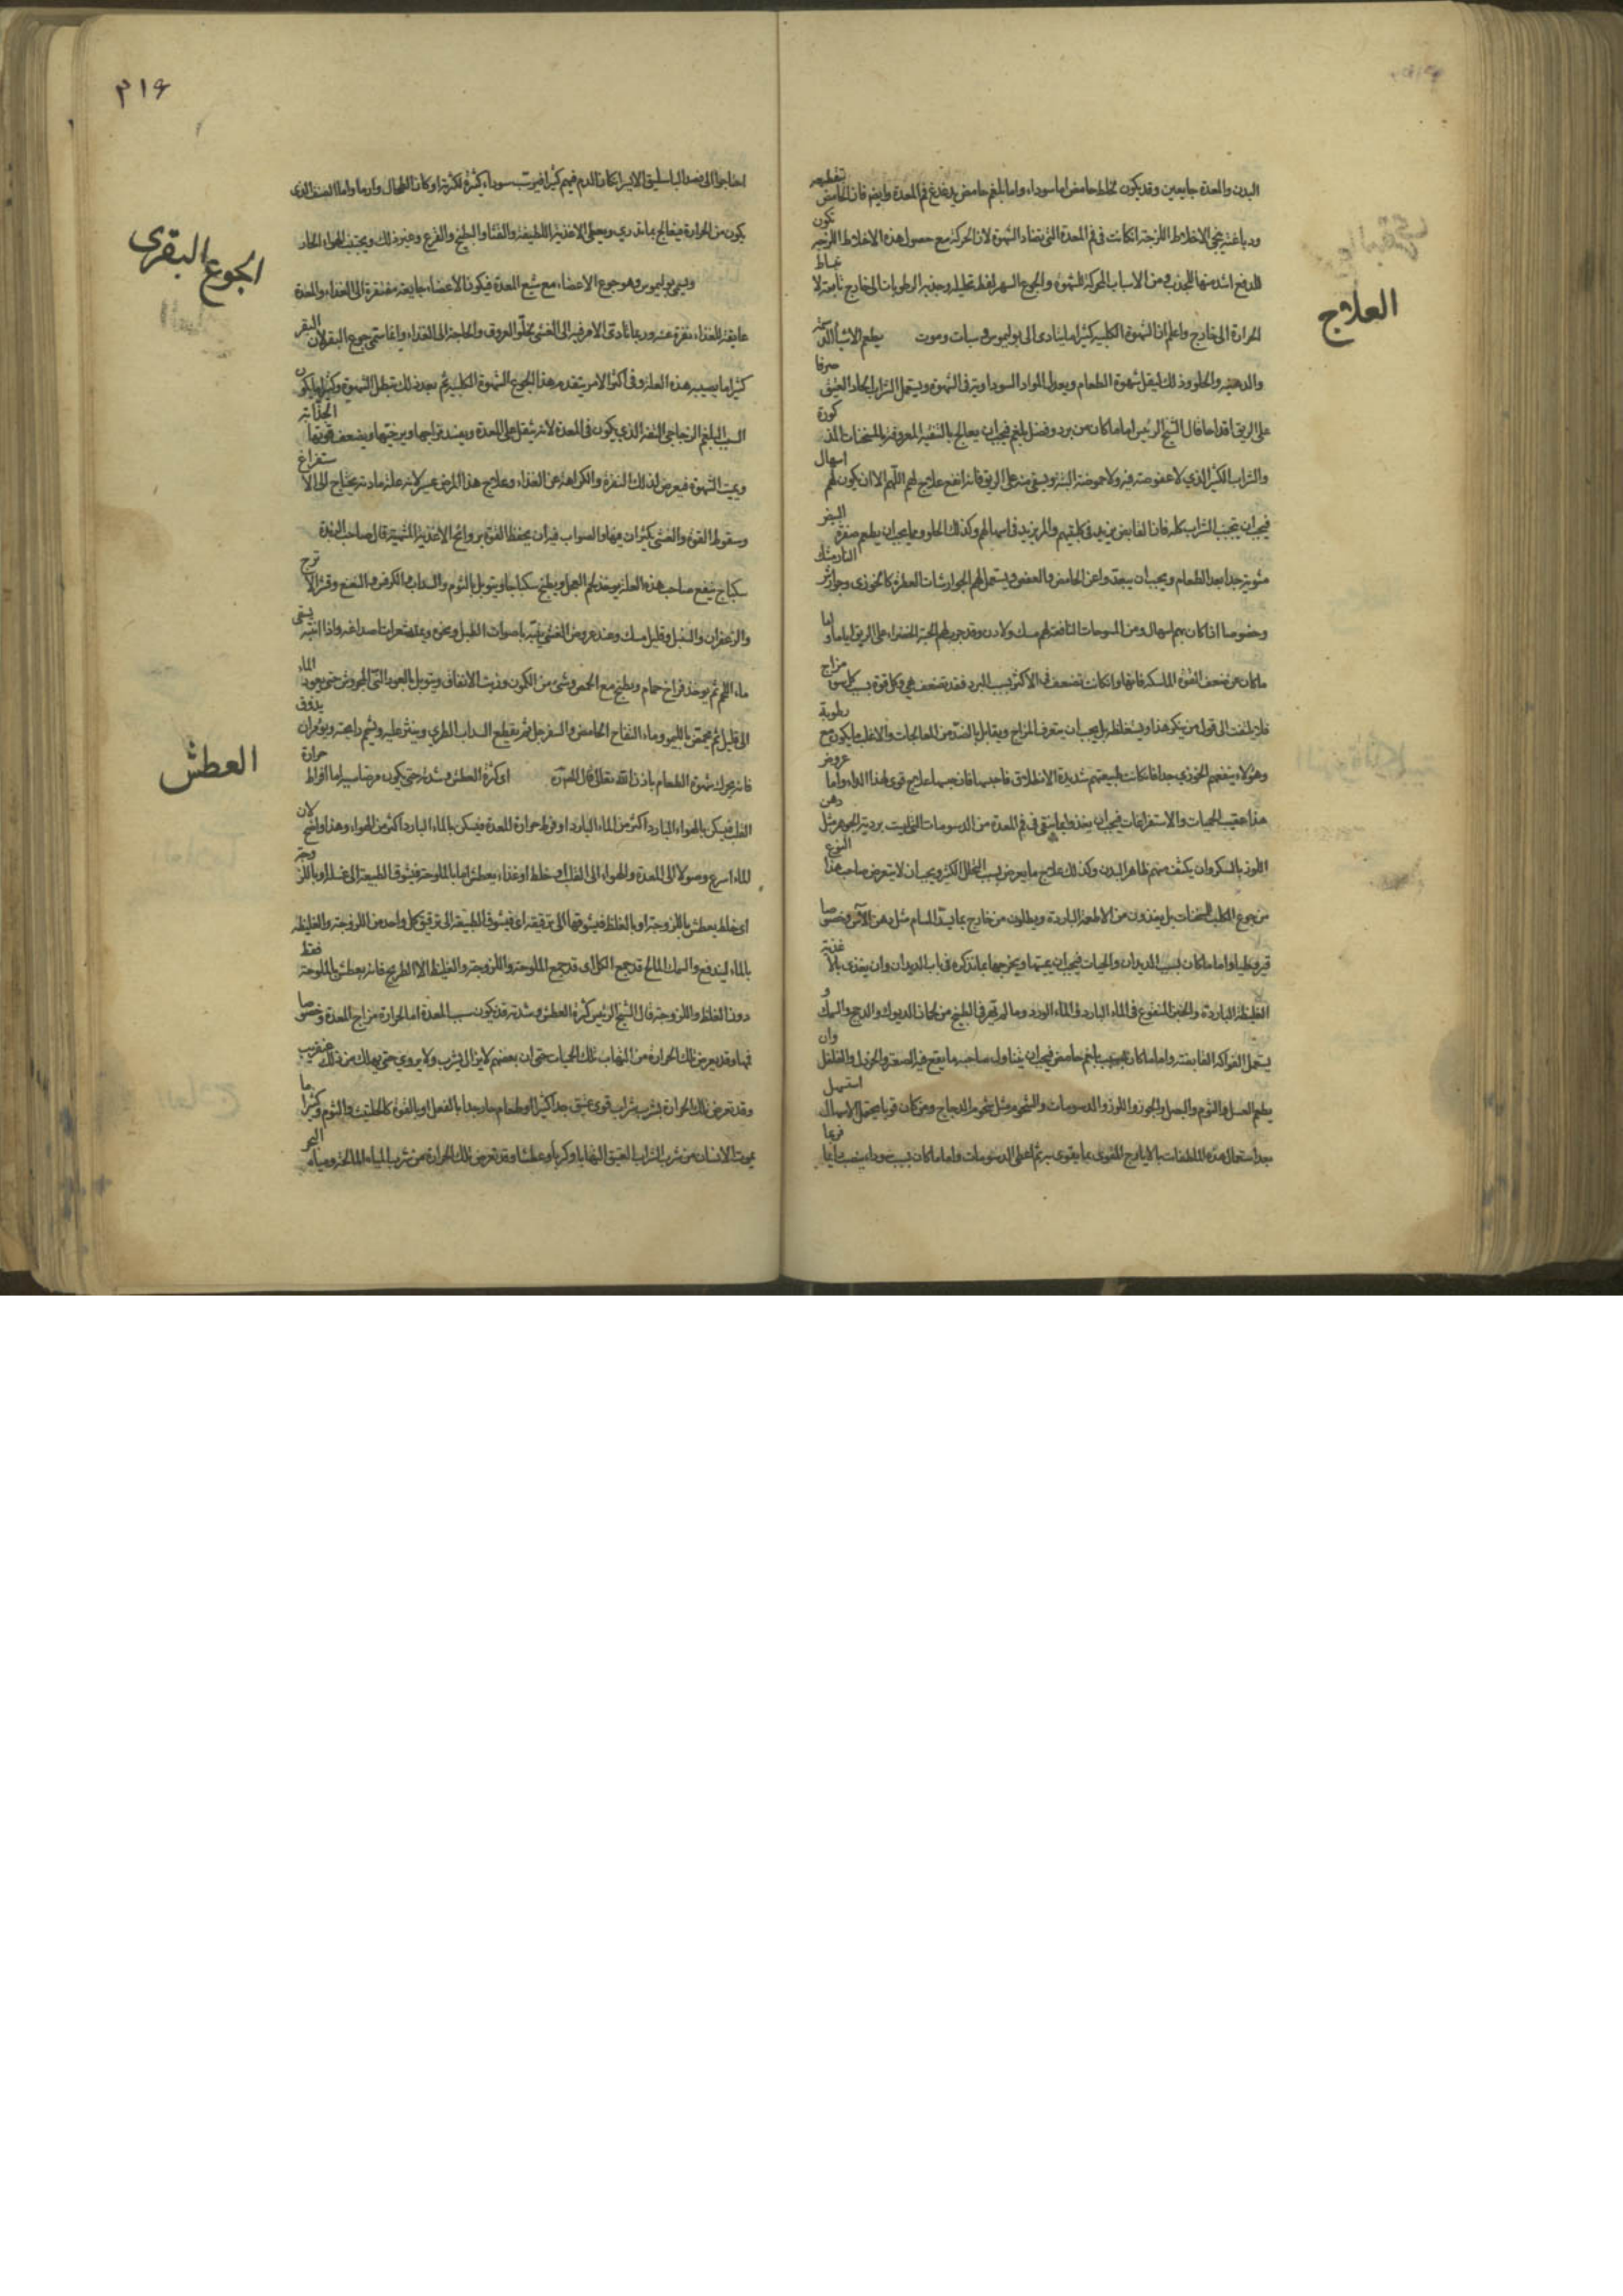 البدن والمعدة جايعين وقد يكون لخلط حامض اما سوداء واما بلغم حامض يدغدغ فم المعدة وايضا فان الحامض بتقطيعه
ودباغته ينحى الاخلاط اللزجة انكانت فى فم المعدة التى تضاد الشهوة لان الحركة مع حصول هذه الاخلاط اللزجة تكون
للدفع اشد منها للجذب ومن الاسباب المحركة للشهوة والجوع السهر لفرط تحليله وجذبه الرطوبات الى خارج تابعة لانبساط
الحرارة الى خارج واعلم ان الشهوة الكلبية كثيرا ما يتادى الى بوليموس وسبات وموت
العلاج
يطعم الاشياء الدسمة
والدهنية والحلوة وذلك ليقل شهوة الطعام ويعدل المواد السوداوية فى الشهوة ويستعمل الشراب الحار العتيق صرفا
على الريق اقداحا قال الشيخ الرئيس اما ما كان من برد وفضل بلغم فيجب ان يعالج بالتنقية المعروفة بالمسخنات المذكورة
والشراب الكثير الذي لا عفوصة فيه ولا حموضة البتة ويسقى منه على الريق فانه انفع علاج لهم اللهم الا ان يكون لهم اسهال
فيجب ان يجتنب الشراب كله فان القابض يزيد فى كلبيتهم والمر يزيد فى اسهالهم وكذلك الحلو ومما يجب ان يطعم صفرة البيض
مشوية جدا بعد الطعام ويجب ان يبعدوا عن الحامض والعفص ويستعمل لهم الجوارشات العطرة كالخوزى وجوارش النارمشك
وخصوصا اذا كان بهم اسهال ومن المسوحات النافعة لهم مسك ولادن وقد جرب لهم الحبة الخضراء على الريق اياما واما
ما كان من ضعف القوة الماسكة فانها وانكانت تضعف فى الاكثر بسبب البرد فقد تضعف هى وكل قوة بسبب كل سوء مزاج
فلا يلتفت الى قول من ينكر هذا ويستغلظ بل يجب ان يتعرف المزاج ويقابل بالضد من المعالجات والاغلب ما يكون مع رطوبة
وهؤلاء ينفعهم الخوزي جدا فان كانت طبيعتهم شديدة الانطلاق فاحبسها فان حبسها علاج قوى لهذا الداء واما عروض
هذا عقيب الحميات والاستفراغات فيجب ان يغذوا بما يبقى فى فم المعدة من الدسومات التى ليست بردية الجوهر مثل دهن
اللوز بالسكر وان يكثف منهم ظاهر البدن وكذلك علاج ما يعرض بسبب التحلل الكثير ويجب ان لا يتعرض صاحب هذا النوع
من جوع الكلب للمسخنات بل يغذون من الاطعمة الباردة ويطلون من خارج بما يسد المسام مثل دهن الآس وخصوصا
قيروطيا واما ما كان بسبب الديدان والحيات فيجب ان يميتها ويخرجها بما نذكره فى باب الديدان وان يتغذى بالاغذية
الغليظة الباردة والخبز المنقوع فى الماء البارد وفى الماء الورد وما لم يهرء فى الطبخ من لحمان الديوك والدجج والسمك و
يستعمل الفواكه القابضة واما ما كان بسبب بلغم حامض فيجب ان يتناول صاحبه ما يقع فيه الصعتر والخردل والفلفل وان
يطعم العسل والثوم والبصل والجوز واللوز والدسومات والشحوم مثل شحوم الدجاج ومن كان قويا يحتمل الاسهال استسهل
بعد استعمال هذه الملطفات بالايارج المقوى بما يقوى به ثم اعطى الدسومات واما ما كان بسبب سوداء ينصب دايما فربما
٣١٤
احتاجوا الى فصد الباسليق الايسر ان كان الدم فيهم كثيرا فيرسب سوداء كثيرة لكثرته او كان الطحال وارما واما الصنف الذى
يكون من الحرارة فيعالج بما تدري ويعطى الاغذية اللطيفة والقثاء والبطيخ والقرع وغير ذلك ويجتنب الهواء الحار
الجوع البقرى
ويسمى بوليموس وهو جوع الاعضاء مع شبع المعدة فيكون الاعضاء جايعة مفتقرة الى الغذاء والمعدة
عايفة للغذاء نفرة عنه وربما تادى الامر فيه الى الغشى لخلو العروق والحاجة الى الغذاء وانما سمى جوع البقر لان البقر
كثيرا ما يصيبه هذه العلة وفى اكثر الامر يتقدم هذا الجوع الشهوة الكلبية ثم بعد ذلك تبطل الشهوة وكثيرا ما يكون
السبب البلغم الزجاجى التفه الذى يكون فى المعدة لانه يثقل على المعدة ويفسد مزاجها ويرخيها ويضعف قوتها الجذابة
ويميت الشهوة فيعرض لذلك النفرة والكراهة عن الغذاء وعلاج هذا المرض عسر لانه علة مادية يحتاج الى الاستفراغ
وسقوط القوة والغشى يكثران فيها والصواب فيه ان يحفظ القوة بروائح الاغذية المشهية قال صاحب
سكباج ينفع صاحب هذه العلة يوخذ لحم العجل ويطبخ سكباجا ويتوبل بالثوم والسداب والكرفس والنعنع وقشر الاترج
والزعفران والسنبل وقليل مسك وعند عروض الغشى ينبه باصوات الطبل ونحوه ويمد شعرات اصداغه واذا انتبه يسقى
ماء اللحم ثم يوخذ فراخ حمام ويطبخ مع الحمص وشىء من الكمون وزيت الانفاق ويتوبل بالعود النى المجروش حتى يعود الماء
الى قليل ثم يحمض بالليمو وماء التفاح الحامض والسفرجل ثم يقطع السداب الطري وينثر عليه ويشم رايحته ويؤمر ان يذوق
فانه يحرك شهوة الطعام باذن الله تعالى
العطش
او كثرة العطش وشدته حتى يكون مرضا سببه اما افراط حرارة
القلب فيسكن بالهواء البارد اكثر من الماء البارد او فرط حرارة المعدة فيسكن بالماء البارد اكثر من الهواء وهذا واضح لان
الماء اسرع وصولا الى المعدة والهواء الى القلب وخلط او غذاء يعطش اما بالملوحة فيشوق الطبيعة الى غسله او باللزوجة
اى خلط يعطش باللزوجة او بالغلظ فيشوقها الى ترقيقه اى فيشوق الطبيعة الى ترقيق كل واحد من اللزوجة والغليظة
بالماء ليندفع والسمك المالح قد جمع الكل اى قد جمع الملوحة واللزوجة والغلظ الا الطريح فانه يعطش بالملوحة فقط
دون الغلظ واللزوجة قال الشيخ الرئيس كثرة العطش وشدته قد يكون سبب المعدة اما لحرارة مزاج المعدة وخصوصا
فمها وقد يعرض تلك الحرارة من التهاب تلك الحميات حتى ان بعضهم لا يزال يشرب ولا يروي حتى يهلك من ذلك عن قريب
وقد تعرض تلك الحرارة بشرب شراب قوى عتيق جدا كثيرا او طعام حار جدا بالفعل او بالقوة كالحلتيت والثوم وكثيرا ما
يموت الانسان من شرب الشراب العتيق التهابا وكربا وعطشا وقد تعرض تلك الحرارة من شرب المياه المالحة ومياه البحر